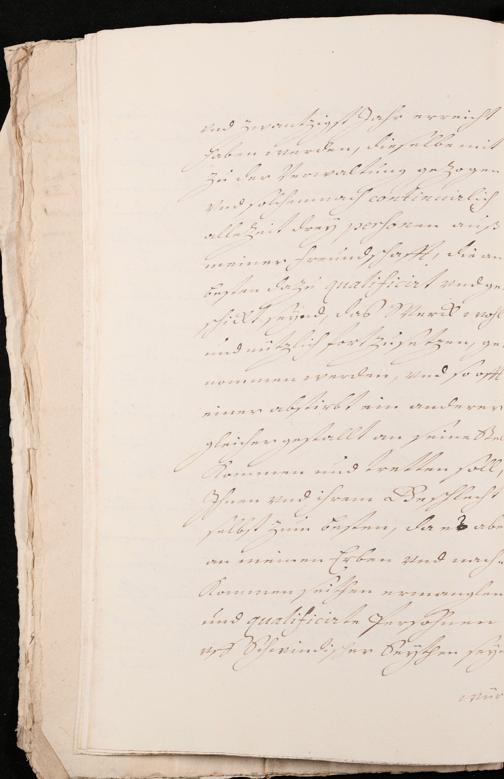 und zwantzigst Jahr erreicht
haben werden, dieselbe mit
zu der Verwaltung gezogen
und solchemnach continuirlich
allezeit drey personen auß
meiner Freundschafft, die am
besten dazu qualificirt und ge
schickt seynd, das Werck wohl
und nützlich fortzusetzen, ge
nommen werden, und so offt
einer abstirbt ein anderer
gleicher gestallt an seine Stel
kommen und tretten soll,
Ihnen und ihrem Geschlecht
selbst zum besten, da es abe
an meinen Erben und nach-
kommen seithen ermanglen
und qualificirte Persohnen
uff Schwindischer Seythen sey
wür